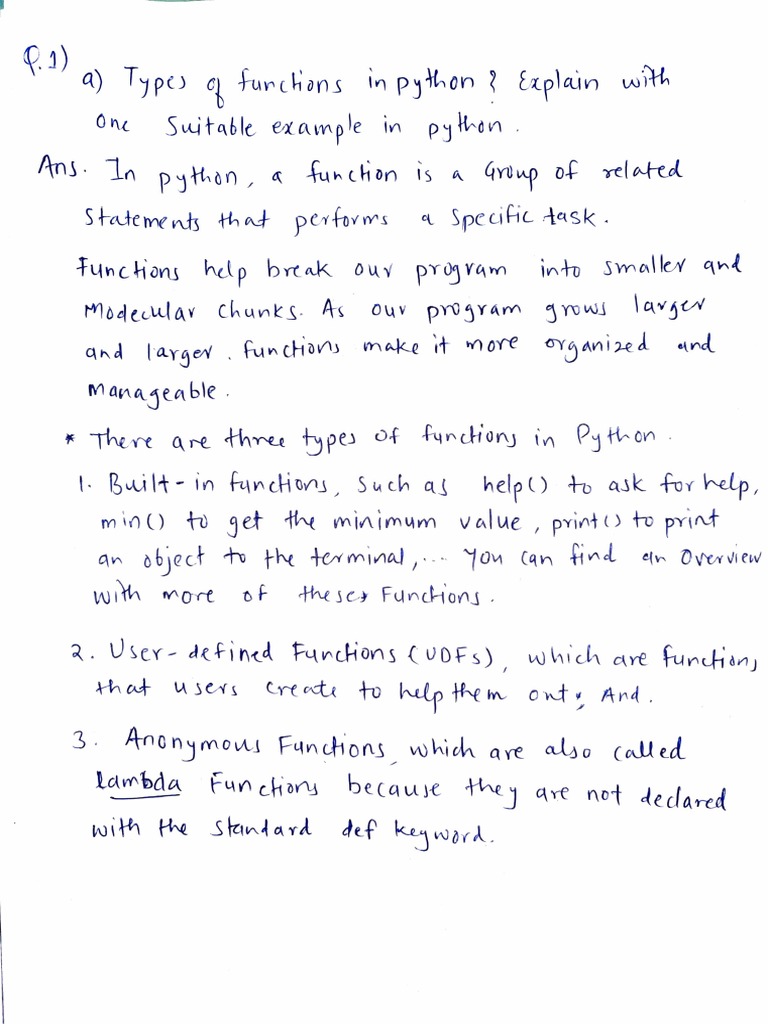 Q.1)
a) Types of functions in python? Explain with
one Suitable example in python.
Ans. In python, a function is a Group of related
Statements that performs a specific task.
Functions help break our program into smaller and
Modecular chunks. As our program grows larger
and larger. functions make it more organized and
manageable.
* There are three types of functions in Python.
1. Built-in functions, Such as help() to ask for help,
min() to get the minimum value, print() to print
an object to the terminal,... You can find an Overview
with more of these, Functions.
2. User-defined Functions (UDFs), which are functions
that users create to help them out; And.
3. Anonymous Functions, which are also called
lambda Functions because they are not declared
with the standard def keyword.